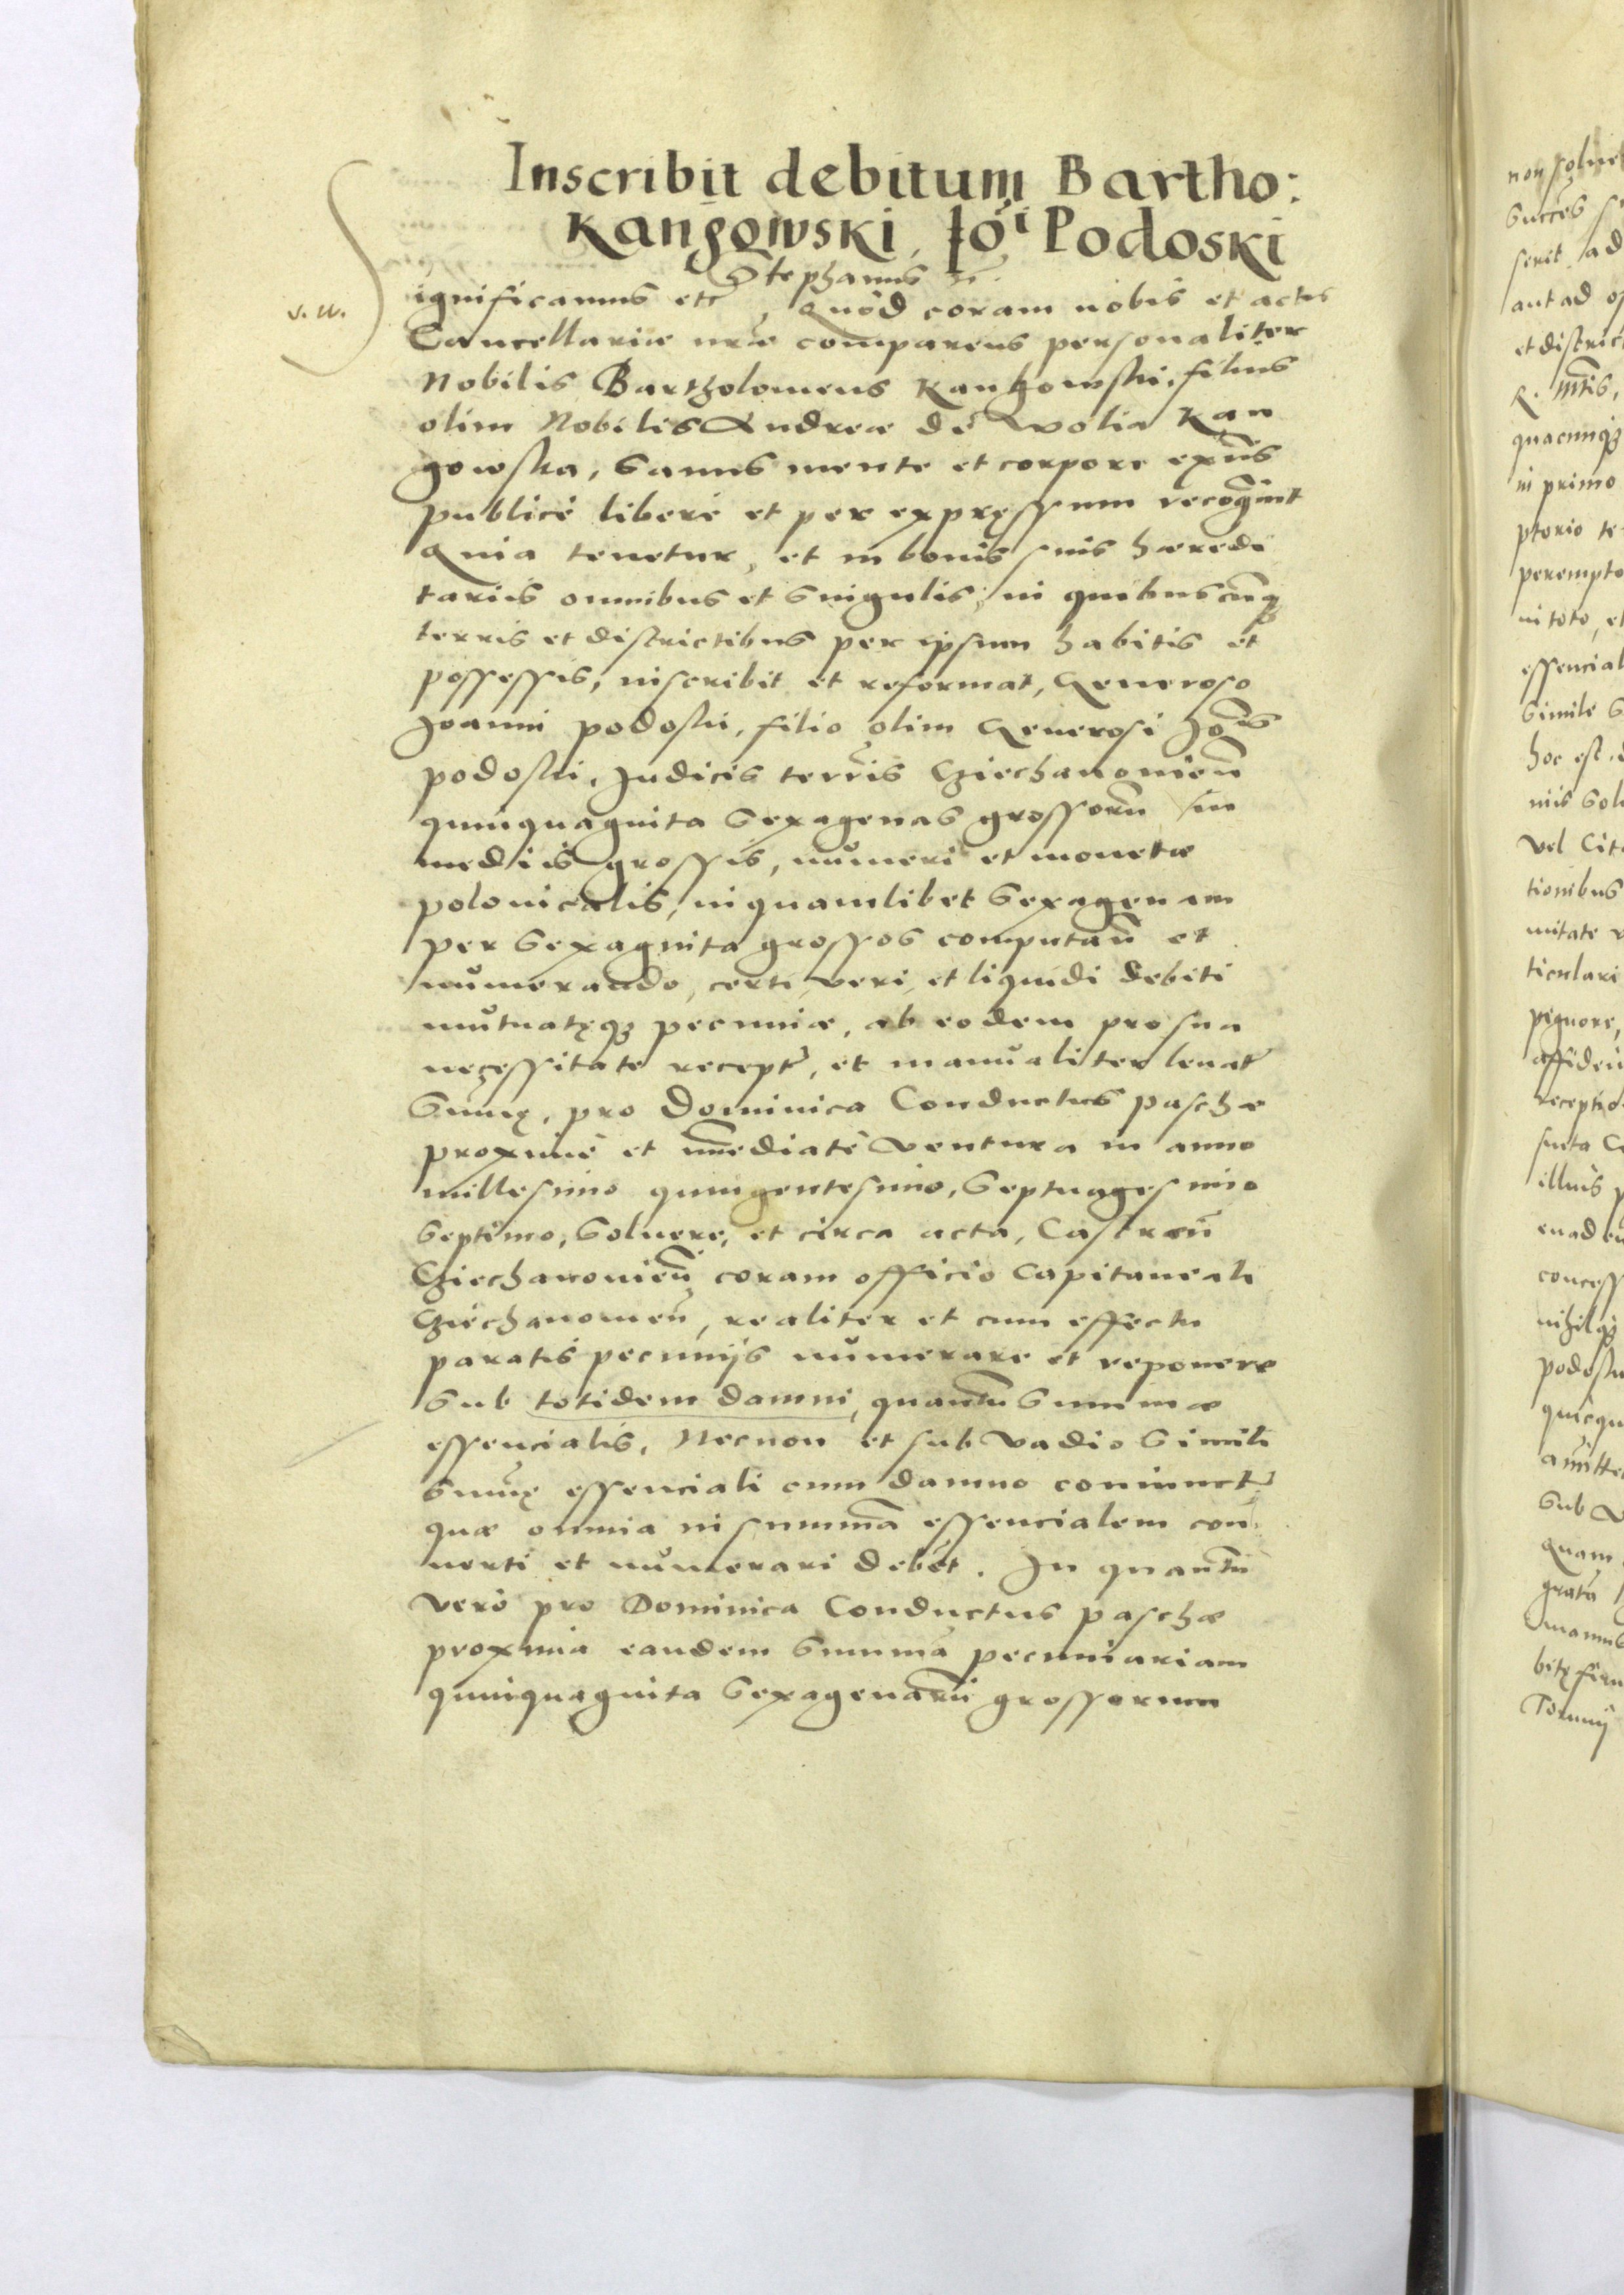 Inscribit debitum Bartho:
Kangowski, Joi Podoski
Stephanus etc.
S. W.
Significamus etc, Quod coram nobis et actis
Cancellariae nrae comparens personaliter
Nobilis Bartholomeus Kangowski, filius
olim Nobilis Andreae de Wolia Kan
gowska, Sanus mente et corpore exn̄s
publicè liberè et per expressum recognit
Quia tenetur, et in bonis suis haeredi
tariis omnibus et Singulis, in quibuscūq
terris et districtibus per ipsum habitis et
possessis, inscribit et reformat, Generoso
Joanni Podoski, filio olim Generosi Joānis
Podoski, Judicis terrīs Cziechanovien̄
quinquaginta Sexagenas grossorū in
mediis grossis, numeri et monetae
polonicalis, in quamlibet Sexagenam
per Sexaginta grossos computan̄ et
numerando, certi, veri, et liquidi debiti
mutuatęq pecuniae, ab eodem pro sua
necessitate recept, et manualiter levat
Sumę, pro Dominica Conductus paschae
proximè et immediatè Ventura in anno
millesimo quingentesimo, Septuagesimo
Septimo, Solvere, et circa acta, Castren̄
Cziechanovien̄ coram officio Capitaneali
Cziechanovien̄, realiter et cum effectu
paratis pecuniis numerare et reponere
Sub totidem damni, quantū Summae
essencialis, Necnon et sub Vadio Simili
Sumę essenciali cum damno coniunct
quae omnia in summā essencialem con
verti et numerari debēt. In quantū
Verò pro Dominica Conductus paschae
proxima eandem Summā pecuniariam
quinquaginta Sexagenarū grossorum
non solve
Succes
serit ad
aut ad
et distric
R. Mtis,
quacunq
in primo
ptorio te
perempto
in toto, et
essencial
Simile S
hoc est
Vel Cita
tionibus
ticulari
pignore,
receptio
illius p
concess
nihilq
Podoski
Sub V
Quam